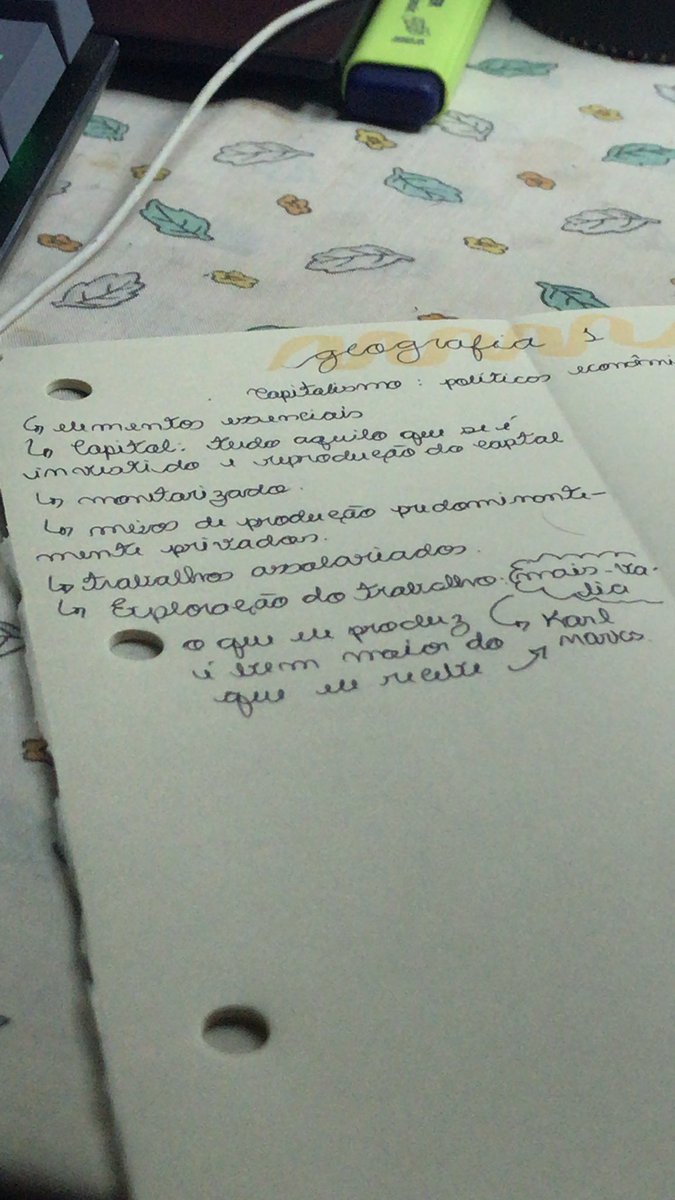 geografia 1
Capitalismo: políticos econômi
↳ elementos essenciais
↳ Capital: tudo aquilo que se é
investido e reprodução do capital
↳ monetarizado.
↳ meios de produção predominante-
mente privados.
↳ trabalhos assalariados.
↳ Exploração do trabalho. mais-va-
lia
o que eu produz ↳ Karl
é bem maior do Marx
que eu recebe